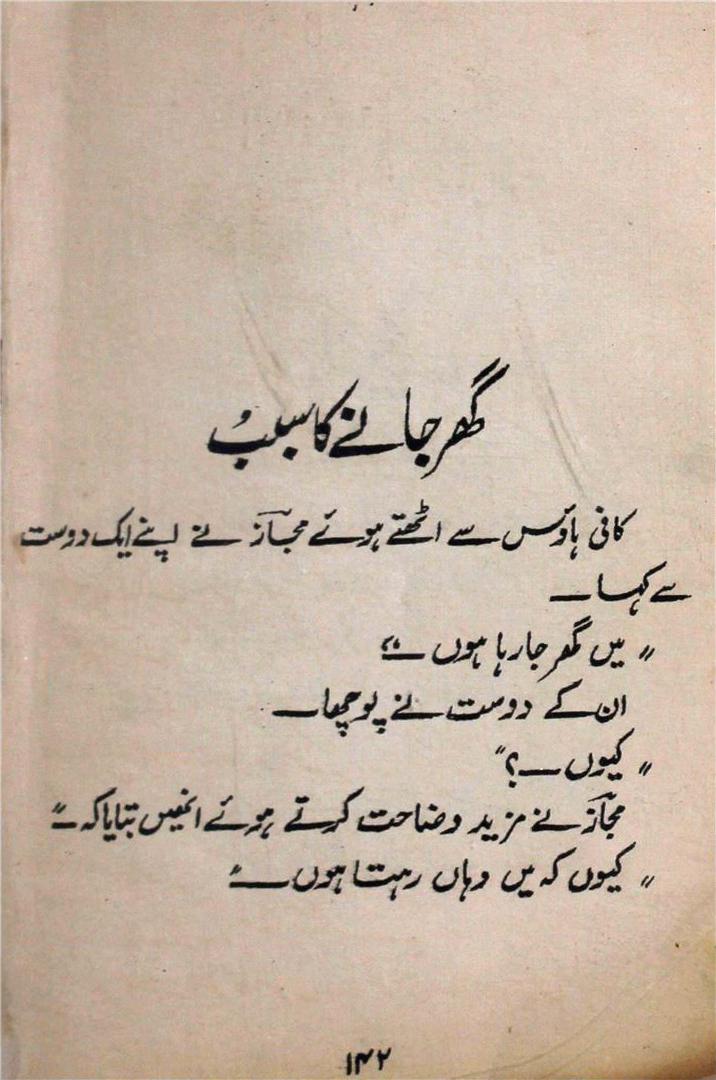 گھر جانے کا سبب
کافی ہاؤس سے اٹھتے ہوئے مجازؔ نے اپنے ایک دوست
سے کہا۔
"میں گھر جا رہا ہوں۔"
ان کے دوست نے پوچھا۔
"کیوں۔؟"
مجازؔ نے مزید وضاحت کرتے ہوئے انھیں بتایا کہ۔"
"کیوں کہ میں وہاں رہتا ہوں۔"
۱۴۲